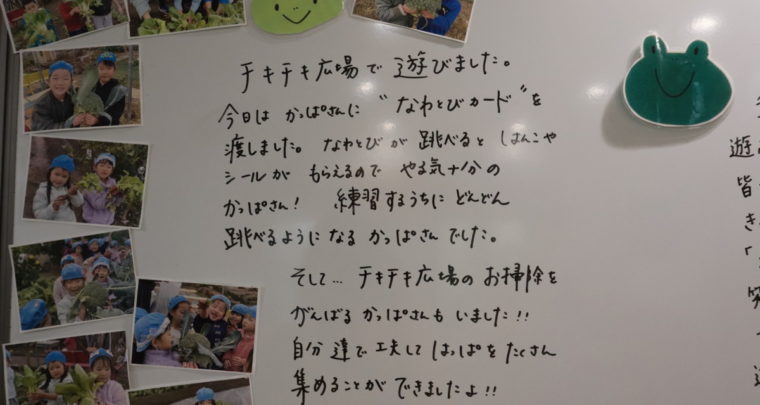 チキチキ広場で遊びました。
今日は かっぱさんに "なわとびカード"を
渡しました。なわとびが 跳べると はんこや
シールが もらえるので やる気十分の
かっぱさん! 練習するうちに どんどん
跳べるようになる かっぱさんでした。
そして… チキチキ広場の お掃除を
がんばる かっぱさんも いました!!
自分達で 工夫して はっぱを たくさん
集めることが できましたよ!!
遊
皆
き
「
笑